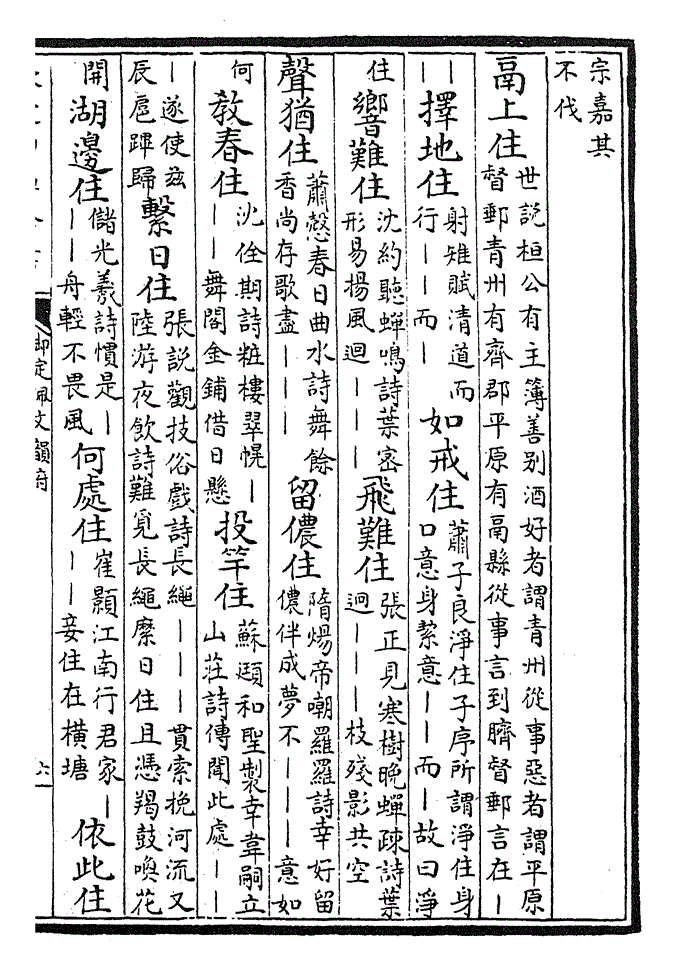 宗嘉其
不伐
鬲上住 世説桓公有主簿善别酒好者謂青州從事惡者謂平原
督郵青州有齊郡平原有鬲縣從事言到臍督郵言在｜
｜｜擇地住 射雉賦清道而
行｜｜而｜ 如戒住 蕭子良淨住子序所謂淨住身
口意身絜意｜｜而｜故曰淨
住 響難住 沈約聽蟬鳴詩葉密
形易揚風迴｜｜｜ 飛難住 張正見寒樹晚蟬疎詩葉
迥｜｜｜枝殘影共空
聲猶住 蕭慤春日曲水詩舞餘
香尚存歌盡｜｜｜ 留儂住 隋煬帝嘲羅羅詩幸好留
儂伴成夢不｜｜｜意如
何 教春住 沈佺期詩粧樓翠幌｜
｜｜舞閣金鋪借日懸 投竿住 蘇頲和聖製幸韋嗣立
山莊詩傳聞此處｜｜
｜遂使兹
辰扈蹕歸 繫日住 張説觀技俗戲詩長繩｜｜｜貫索挽河流又
陸游夜飲詩難覓長繩縻日住且憑羯鼓喚花
開 湖邊住 儲光羲詩慣是｜
｜｜舟輕不畏風 何處住 崔顥江南行君家｜
｜｜妾住在橫塘 依此住
御定佩文韻府
六